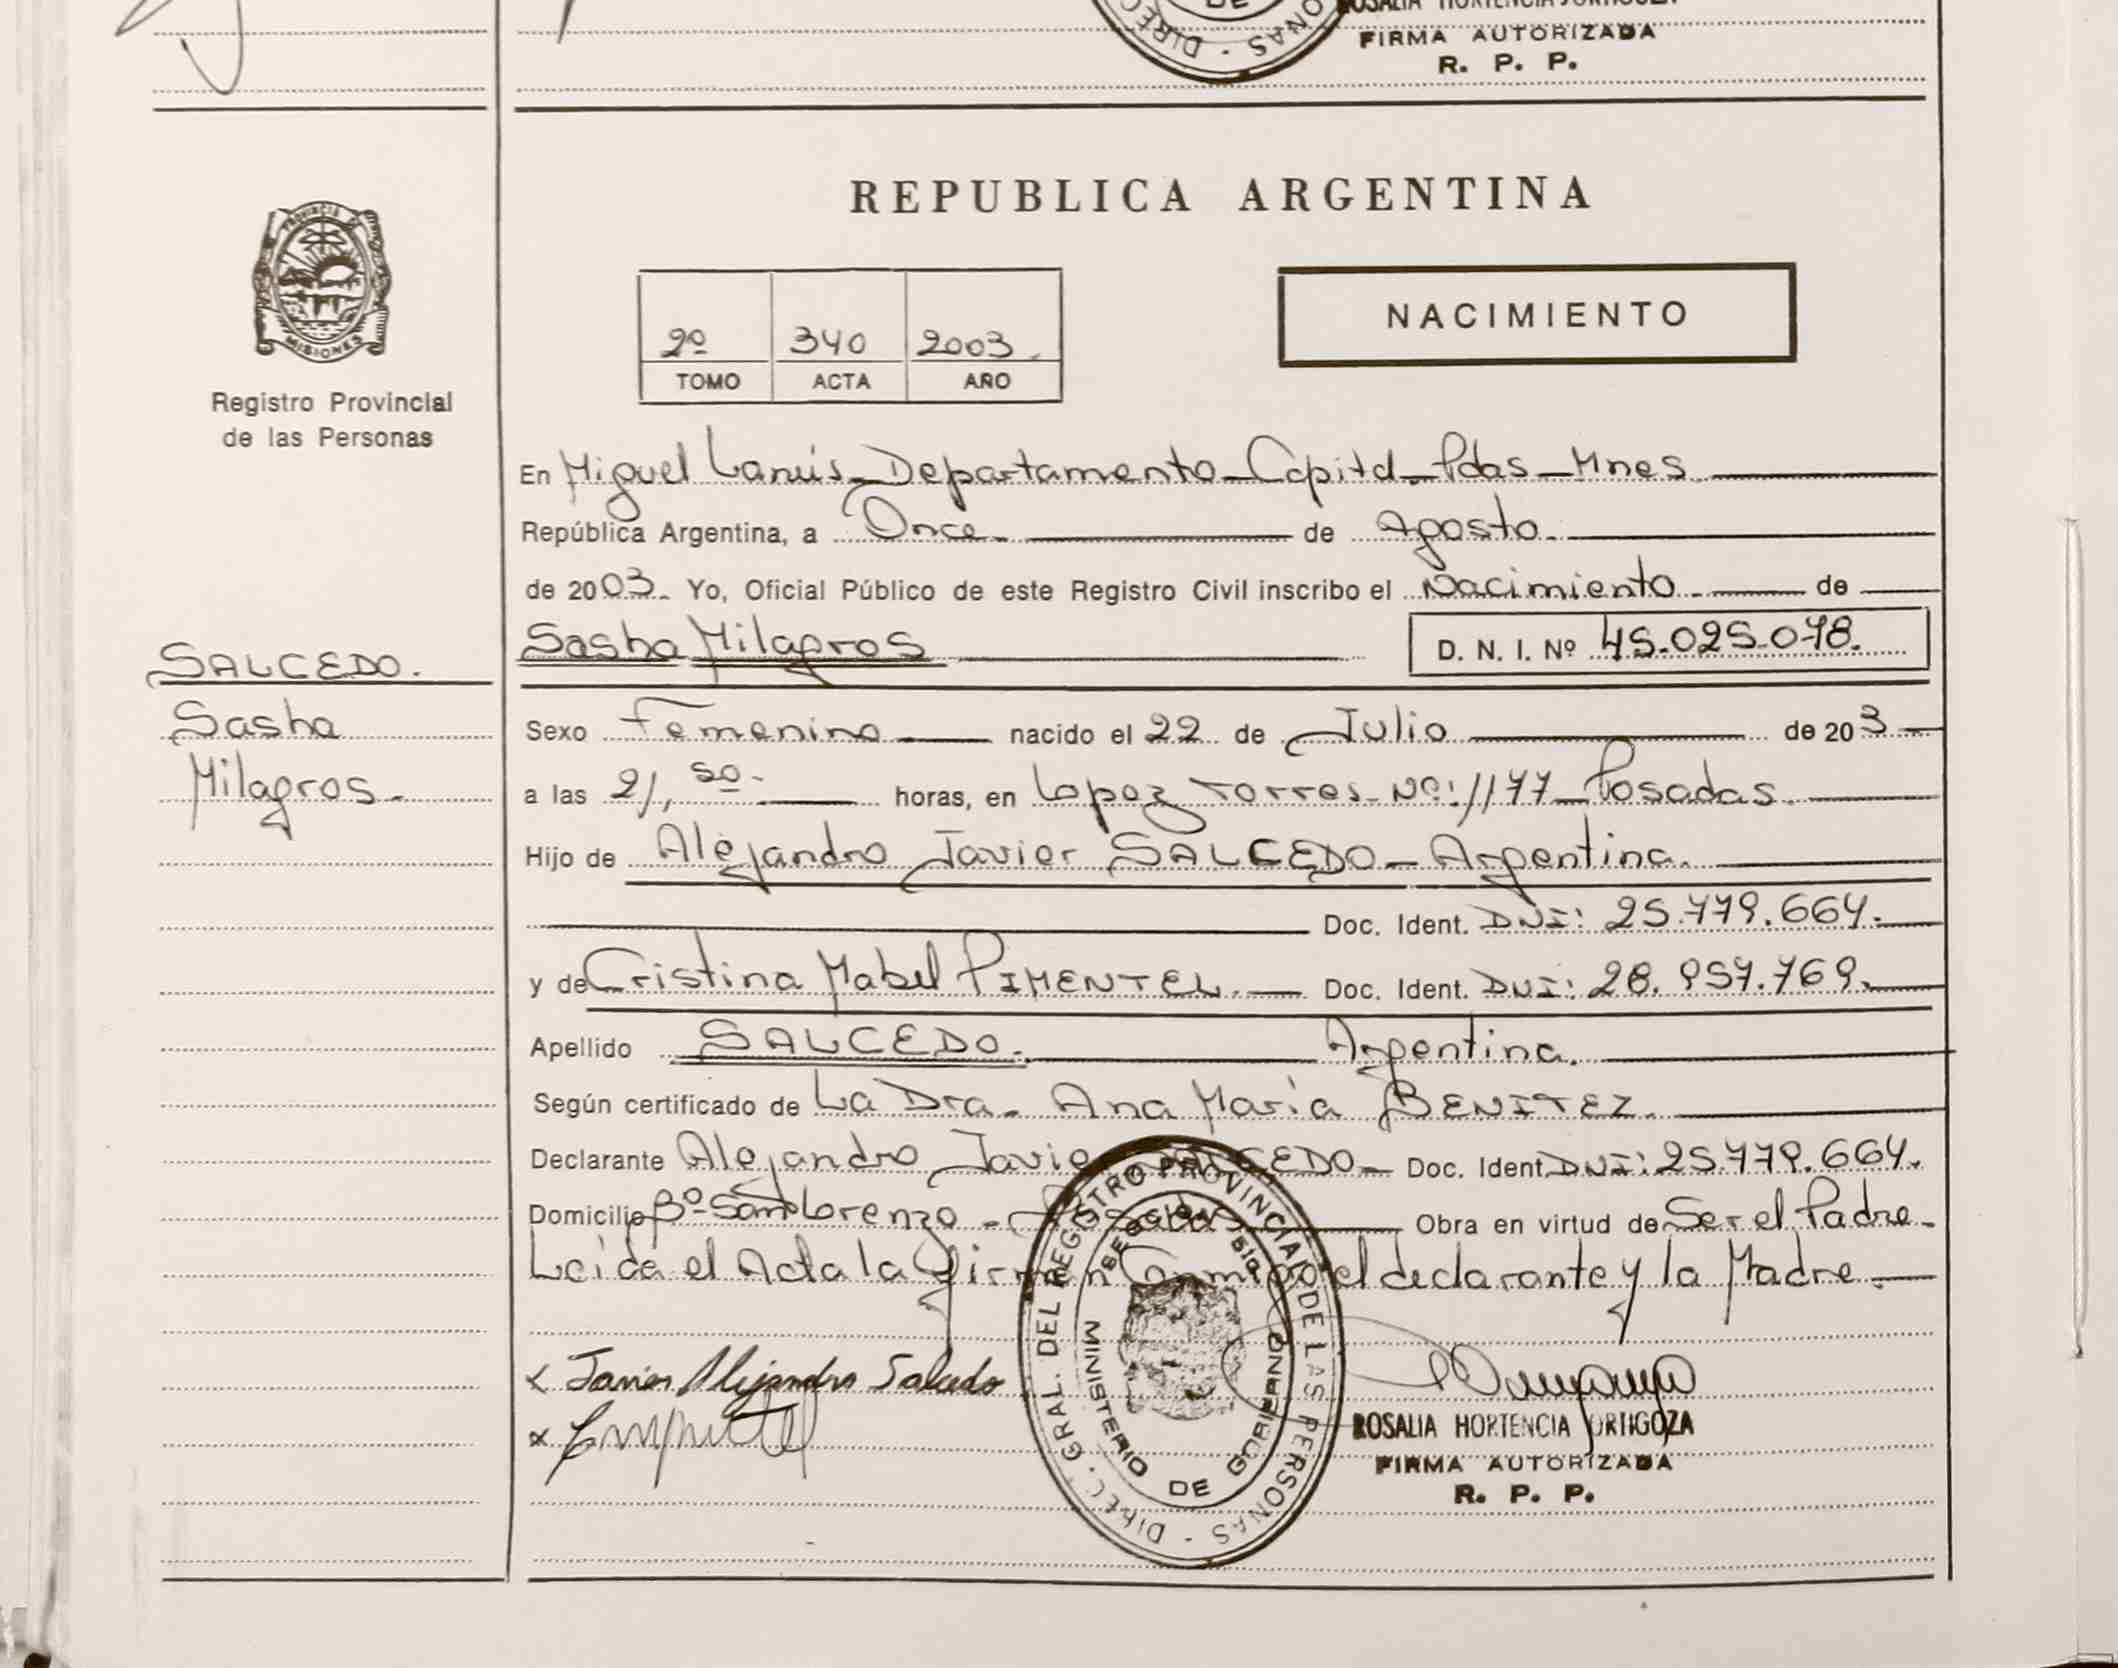 ROSALIA HORTENCIA ORTIGOZA
FIRMA AUTORIZADA
R. P. P.
DIREC
ONAS
DE
PROVINCIA DE
MISIONES
Registro Provincial
de las Personas
REPUBLICA ARGENTINA
2º 340 2003.
TOMO ACTA AÑO
NACIMIENTO
En Miguel Lanús_Departamento_Capital_Pdas_Mnes.
República Argentina, a Once. de Agosto.
de 2003. Yo, Oficial Público de este Registro Civil inscribo el Nacimiento. de
Sasha Milagros D. N. I. Nº 45.025.078.
SALCEDO.
Sasha
Milagros.
Sexo Femenino nacido el 22 de Julio de 203
a las 21,50. horas, en Lopez Torres_Nº:1177_Posadas.
Hijo de Alejandro Javier SALCEDO_Argentina.
Doc. Ident. DNI: 25.779.664.
y de Cristina Mabel PIMENTEL. Doc. Ident. DNI: 28.957.769.
Apellido SALCEDO. Argentina.
Según certificado de La Dra. Ana María BENITEZ.
Declarante Alejandro Javier SALCEDO_ Doc. Ident. DNI: 25.779.664.
Domicilio Bº San Lorenzo - Posadas Obra en virtud de Ser el Padre.
Leída el Acta la firman Conmigo el declarante y la Madre.
x Javier Alejandro Salcedo
x
ROSALIA HORTENCIA ORTIGOZA
FIRMA AUTORIZADA
R. P. P.
DIREC. GRAL. DEL REGISTRO PROVINCIAL DE LAS PERSONAS
MINISTERIO DE GOBIERNO